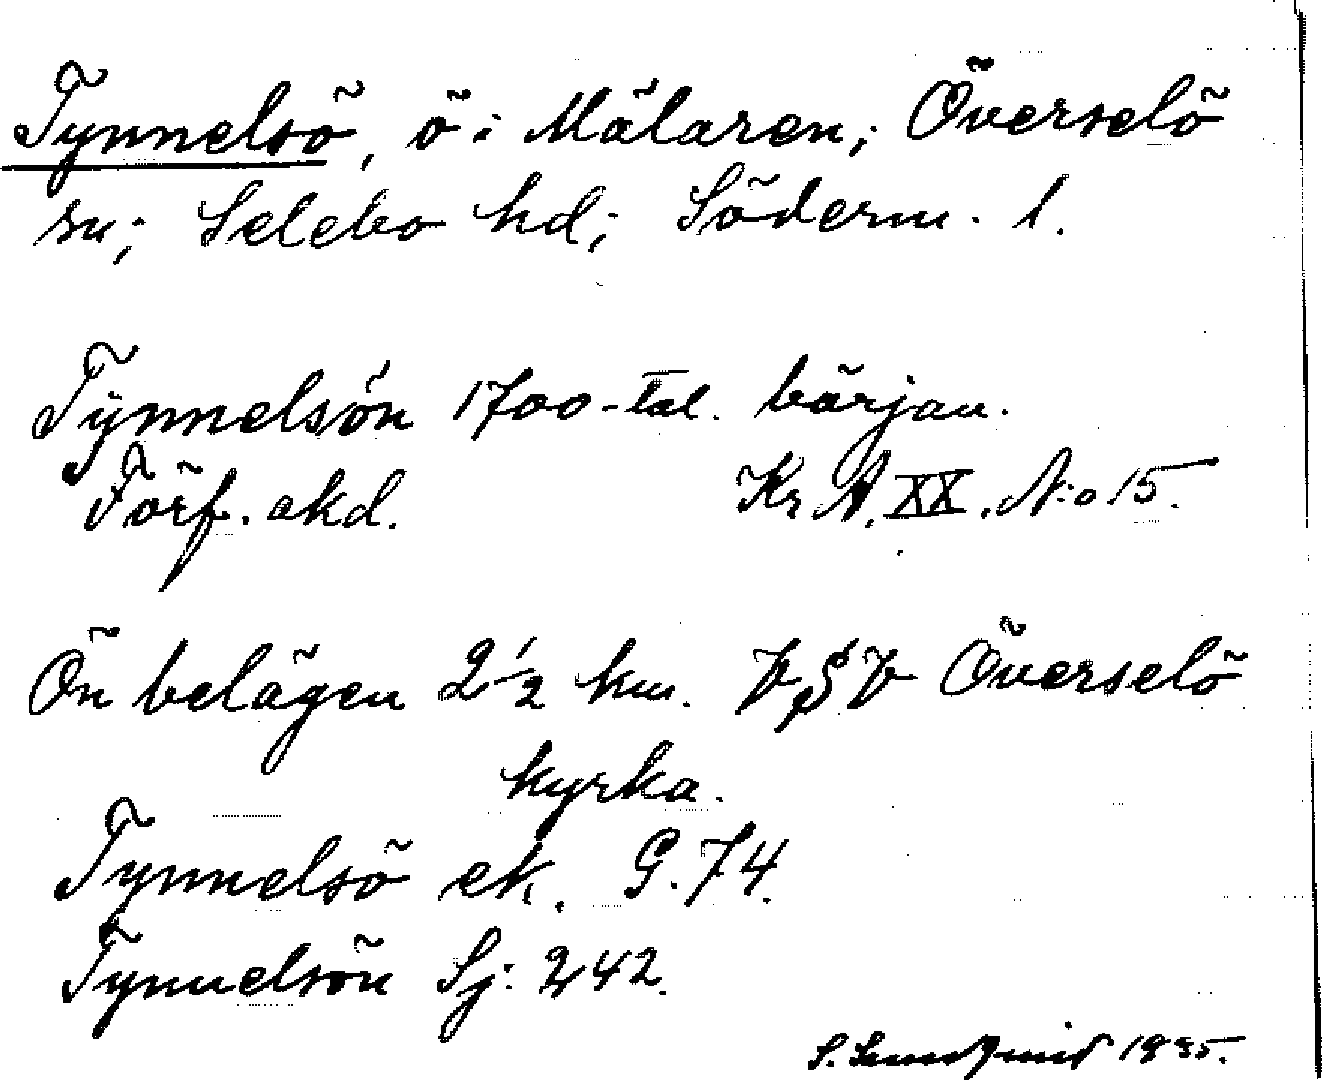 Tynnelsö, ö i Mälaren; Överselö
sn; Selebo hd; Söderm. l.
Tÿnnelsön 1700-tal. början.
Förf. okd. Kr. A. XX. N:o 15.
Ön belägen 2 1/2 km. VSV Överselö
kyrka.
Tynnelsö ek. G. 74.
Tynnelsön Sj: 242.
S. 1935.